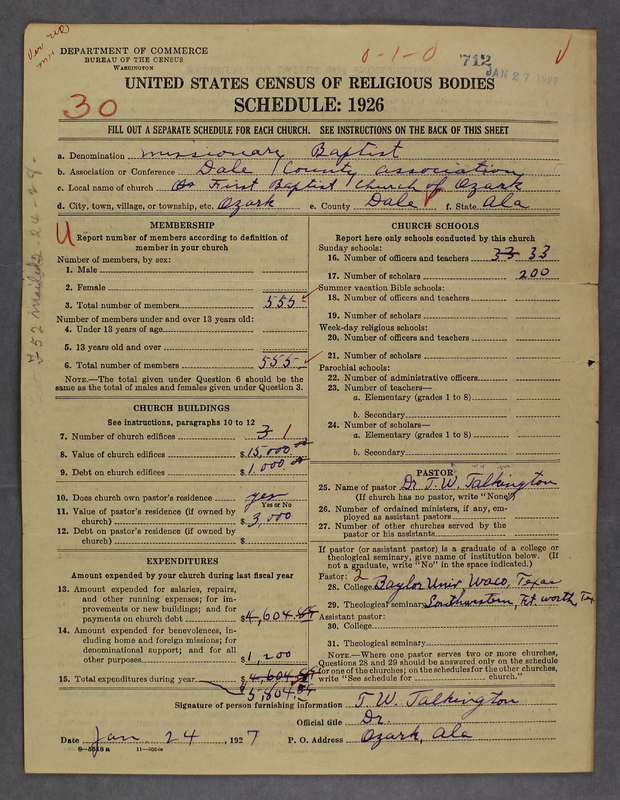 DEPARTMENT OF COMMERCE
BUREAU OF THE CENSUS
WASHINGTON
0-1-0
712
JAN 27 1927
30
UNITED STATES CENSUS OF RELIGIOUS BODIES
SCHEDULE: 1926
FILL OUT A SEPARATE SCHEDULE FOR EACH CHURCH. SEE INSTRUCTIONS ON THE BACK OF THIS SHEET
a. Denomination Missionary Baptist
b. Association or Conference Dale County association
c. Local name of church First Baptist Church of Ozark
d. City, town, village, or township, etc. Ozark e. County Dale f. State Ala
MEMBERSHIP
Report number of members according to definition of
member in your church
Number of members, by sex:
1. Male
2. Female
3. Total number of members 555
Number of members under and over 13 years old:
4. Under 13 years of age
5. 13 years old and over
6. Total number of members 555
NOTE.—The total given under Question 6 should be the
same as the total of males and females given under Question 3.
CHURCH BUILDINGS
See instructions, paragraphs 10 to 12
7. Number of church edifices 3 1
8. Value of church edifices $15,000.00
9. Debt on church edifices $1,000.00
10. Does church own pastor's residence yes
Yes or No
11. Value of pastor's residence (if owned by
church) $3,000
12. Debt on pastor's residence (if owned by
church) $
EXPENDITURES
Amount expended by your church during last fiscal year
13. Amount expended for salaries, repairs,
and other running expenses; for im-
provements or new buildings; and for
payments on church debt $4,604
14. Amount expended for benevolences, in-
cluding home and foreign missions; for
denominational support; and for all
other purposes $1,200
15. Total expenditures during year $4,604
$5,804
CHURCH SCHOOLS
Report here only schools conducted by this church
Sunday schools:
16. Number of officers and teachers 33 33
17. Number of scholars 200
Summer vacation Bible schools:
18. Number of officers and teachers
19. Number of scholars
Week-day religious schools:
20. Number of officers and teachers
21. Number of scholars
Parochial schools:
22. Number of administrative officers
23. Number of teachers—
a. Elementary (grades 1 to 8)
b. Secondary
24. Number of scholars—
a. Elementary (grades 1 to 8)
b. Secondary
PASTOR
25. Name of pastor Dr. T. W. Talkington
(If church has no pastor, write "None")
26. Number of ordained ministers, if any, em-
ployed as assistant pastors
27. Number of other churches served by the
pastor or his assistants
If pastor (or assistant pastor) is a graduate of a college or
theological seminary, give name of institution below. (If
not a graduate, write "No" in the space indicated.)
Pastor: 2
28. College Baylor Univ. Waco, Texas
29. Theological seminary Southwestern, Ft. Worth, Tex
Assistant pastor:
30. College
31. Theological seminary
NOTE.—Where one pastor serves two or more churches,
Questions 28 and 29 should be answered only on the schedule
for one of the churches; on the schedules for the other churches,
write "See schedule for church."
Signature of person furnishing information T. W. Talkington
Official title Dr.
Date Jan. 24, 1927 P. O. Address Ozark, Ala
8-5518a 11-9054a